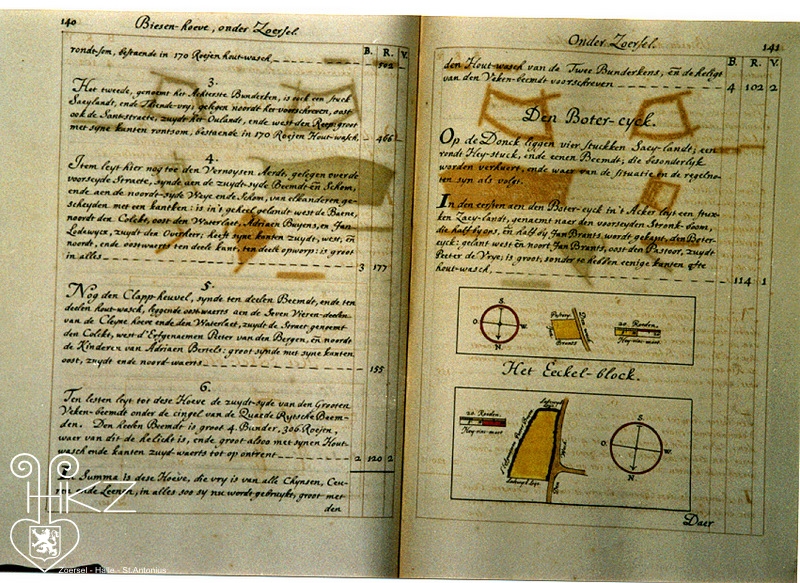 140
Biesen-hoeve, onder Zoersel.
B. R. V.
rondt-som, bestaende in 170 Roejen hout-wasch,
502
3.
Het tweede, genoemt het Achterste Bunderken, is oock een stuck
Saeylandt, ende Thiende-vry; gelegen noordt het voorschreven, oost
oock de Santstraete, zuydt het Outlandt, ende west den Reep: groot
met syne kanten rontsom, bestaende in 170 Roejen Hout-wasch.
466
4.
Item leyt hier nog toe den Vernoysen Aerdt, gelegen over de
voorseyde Straete, synde aen de zuydt-syde Beemdt en Schom,
ende aen de noordt-syde Weye ende Schom, van elkanderen ge-
scheyden met een kantken: is in't geheel gelandt west de Baene,
noordt den Colckt, oost den Waterlaet, Adriaen Buyens, en Jan
Lodewycx, zuydt den Overheer: heeft syne kanten zuydt, west, en
noordt, ende oostwaerts ten deele kant, ten deele opworp: is groot
in alles
3 177
5.
Nog den Clapp-heuvel, synde ten deelen Beemdt, ende ten
deelen hout-wasch, leggende oost-waerts aen de Seven Vieren-deelen
van de Cleyne hoeve ende den Waterlaet, zuydt de Straet genoemt
den Colckt, west d'Erfgenaemen Peeter van den Bergen, en noordt
de Kinderen van Adriaen Bertels: groot synde met syne kanten
oost, zuydt ende noord-waerts
155
6.
Ten lesten leyt tot dese Hoeve de zuydt-syde van den Grooten
Veken-beemdt onder de cingel van de Quaede Rytsche Beem-
den. Den heelen Beemdt is groot 4. Bunder, 306 Roejen,
waer van dit de helickt is, ende groot alsoo met synen Hout-
wasch ende kanten zuyd-waerts tot op ontrent
2 120 2
Summa is dese Hoeve, die vry is van alle Chynsen, Ceu-
ren ende Leenen, in alles soo sy nu wordt gebruykt, groot met
den
Onder Zoersel.
141
B. R. V.
den Hout-wasch van de Twee Bunderkens, en de heligt
van den Veken-beemdt voorschreven
4 102 2
Den Boter-eyck.
Op de Donck liggen vier stucken Saey-landt; een
rondt Hey-stuck, ende eenen Beemdt; die besonderlyk
worden verhuert, ende waer van de situatie in de regelno-
ten syn als volgt.
In den eersten aen den Boter-eyck in't Acker leyt een stuc-
ken Zaey-landt, genaemt naer den voorseyden Stronk-boom,
die half by ons, en half by Jan Brants wordt gekapt, den Boter-
eyck: gelant west en noort Jan Brants, oost den Pastoor, zuydt
Peeter de Vrye; is groot, sonder te hebben eenige kanten ofte
hout-wasch,
114 1
S.
O. W.
N
20. Roeden.
Het Eeckel-block.
20. Roeden.
S.
O. W.
N
Daer
HKZ
Zoersel - Halle - St.Antonius